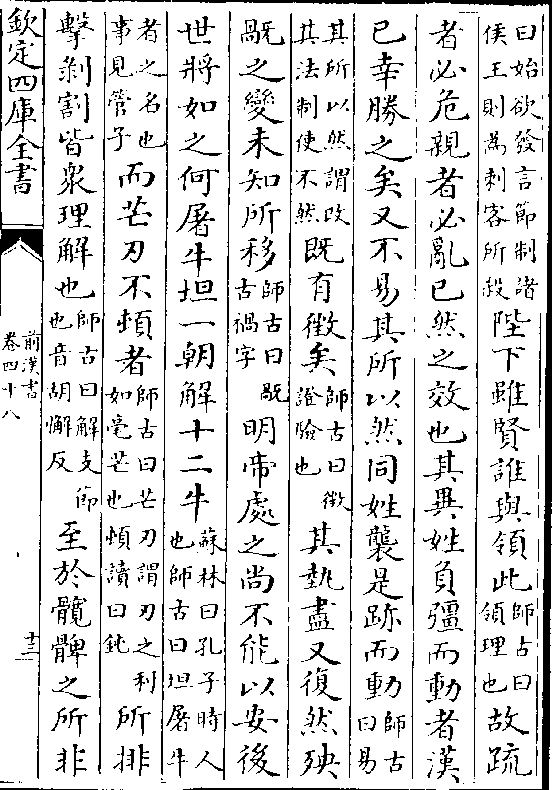 曰始欲發言節制諸侯王則為刺客所殺陛下雖賢誰與領此師古曰領理也故疏
者必危親者必亂已然之效也其異姓負彊而動者漢
已幸勝之矣又不易其所以然同姓襲是跡而動師古曰易
其所以然謂改其法制使不然既有徵矣師古曰徵證驗也其埶盡又復然殃
旤之變未知所移師古曰旤古禍字明帝處之尚不能以安後
世將如之何屠牛坦一朝解十二牛蘇林曰孔子時人也師古曰坦屠牛
者之名也事見管子而芒刃不頓者師古曰芒刃謂刃之利如毫芒也頓讀曰鈍所排
擊剥割皆衆理解也師古曰解支節也音胡懈反至於髖髀之所非
欽定四庫全書
前漢書
卷四十八
十三